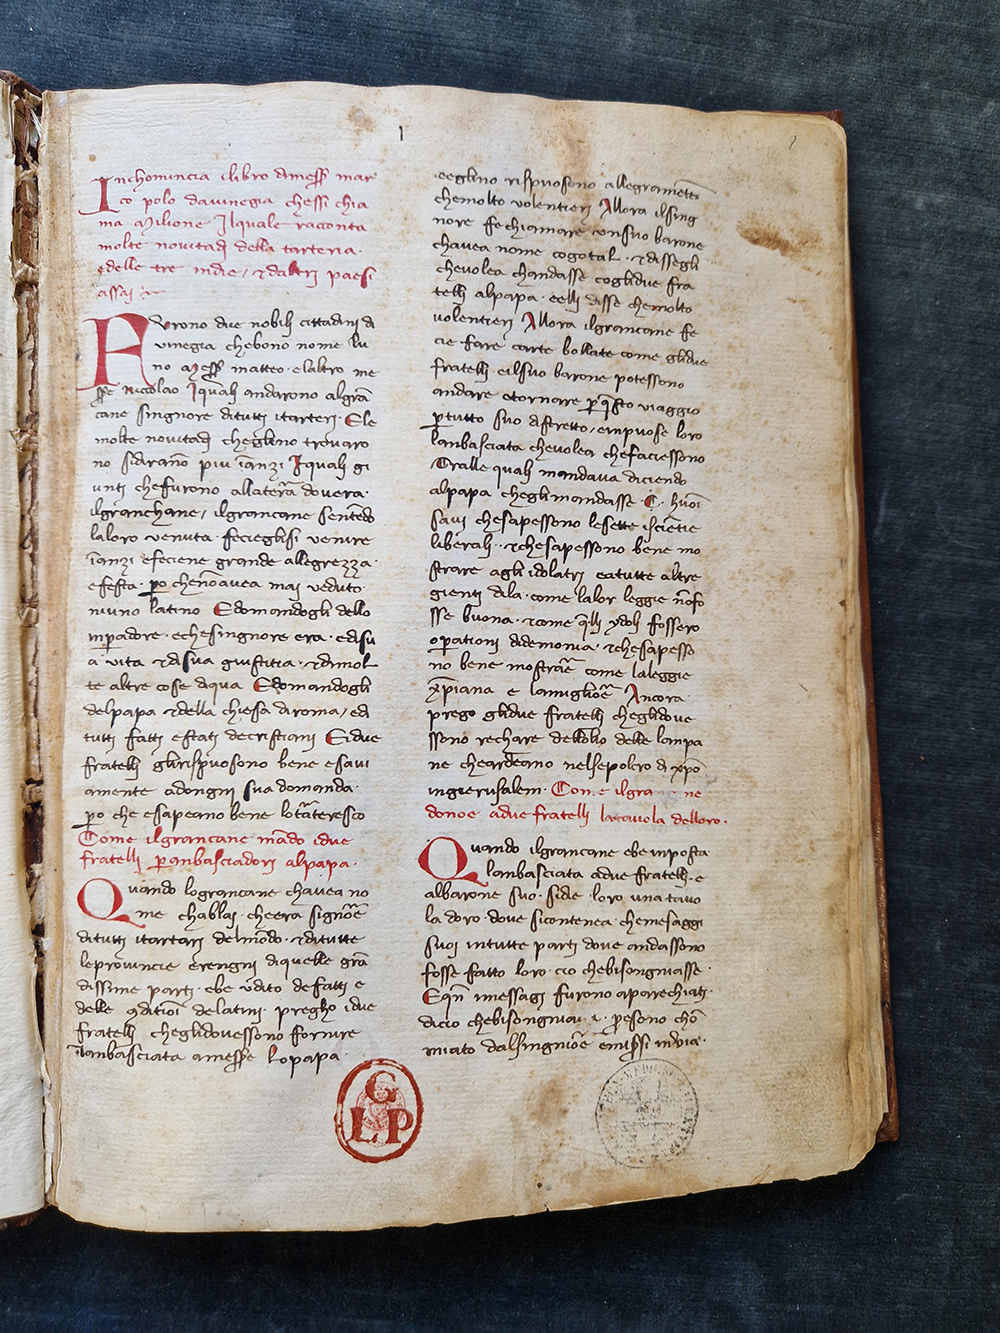 1
Inchomincia ilibro dmess mar
co polo davinegia chessi chia
ma Milione Ilquale racconta
molte novitadj della tarteria
edelle tre indie, et daltri paesi
assai
Furono due nobili cittadini di
vinegia chebono nome lu
no Mess matteo elaltro me
sse Niccolao Iquali andarono algrā
cane singnore ditutti itarteri Ele
molte novitadj cheglino trovaro
no sidiranō piu īanzi Iquali gi
unti chefurono allaterā dovera
ilgranchane, ilgrancane sentēdo
laloro venuta feciegliſi venire
īanzi efeciene grande allegrezza
efesta po chenōavea mai veduto
niuno latino Edomandogli dello
inpadore echesingnore era edisu
a vita et disua giustitia et dimol
te altre cose diqua Edomandogli
delpapa et della chiesa diroma, ed
tutti fatti estati decristiani Eidue
fratelli glirispuosono bene esavi
amente adongni sua domanda
po che esapeano bene lotāteresco
Come ilgrancane mādo idue
fratelli panbasciadori alpapa
Quando lograncane chavea no
me chablaj cheera signōe
ditutti itartari delmōdo et ditutte
leprovincie erengni diquelle grā
dissime parti ebe udito defatti e
delle 9ditioī delatini pregho idue
fratelli cheglidovessono fornire
īanbasciata amesse Lopapa
eeglino rispuosono allegramēte
chemolto volentieri Allora ilsing
nore fe chiamare unsuo barone
chavea nome cogotal et dissegli
chevolea chandasse coglidue fra
telli alpapa eelli disse chemolto
volentieri Allora ilgrancane fe
cie fare carte bollate come glidue
fratelli eilsuo barone potessono
andare etornare pqsto viaggio
ptutto suo distretto, einpuose loro
lanbasciata chevolea chefaciessono
Tralle quali mandava diciendo
alpapa cheglimandasse C huoī
savi chesapessono lesette iscientie
liberali et chesapessono bene mo
strare agli idolatri eatutte altre
gienti dila come lalor leggie nōfo
sse buona et come qlli ydoli fossero
opationi didemonia et chesapesso
no bene mostrāe come laleggie
xpiana e lamigliōe Ancora
prego glidue fratelli cheglidove
ssono rechare dellolio delle lanpa
ne cheardeano nelsepolcro di xpō
ingierusalem Come ilgra ne
donoe adue fratelli latavola delloro.
Quando ilgrancane ebe inposta
lanbasciata adue fratelli e
albarone suo side loro una tavo
la doro dove sicontenea chemesaggi
suoi intutte parti dove andassono
fosse fatto loro cio chebisongniasse
Eqn imessagi furono aparechiati
dicio chebisongniava presono chō
miato dalsingniōe emissi invia
G
L P